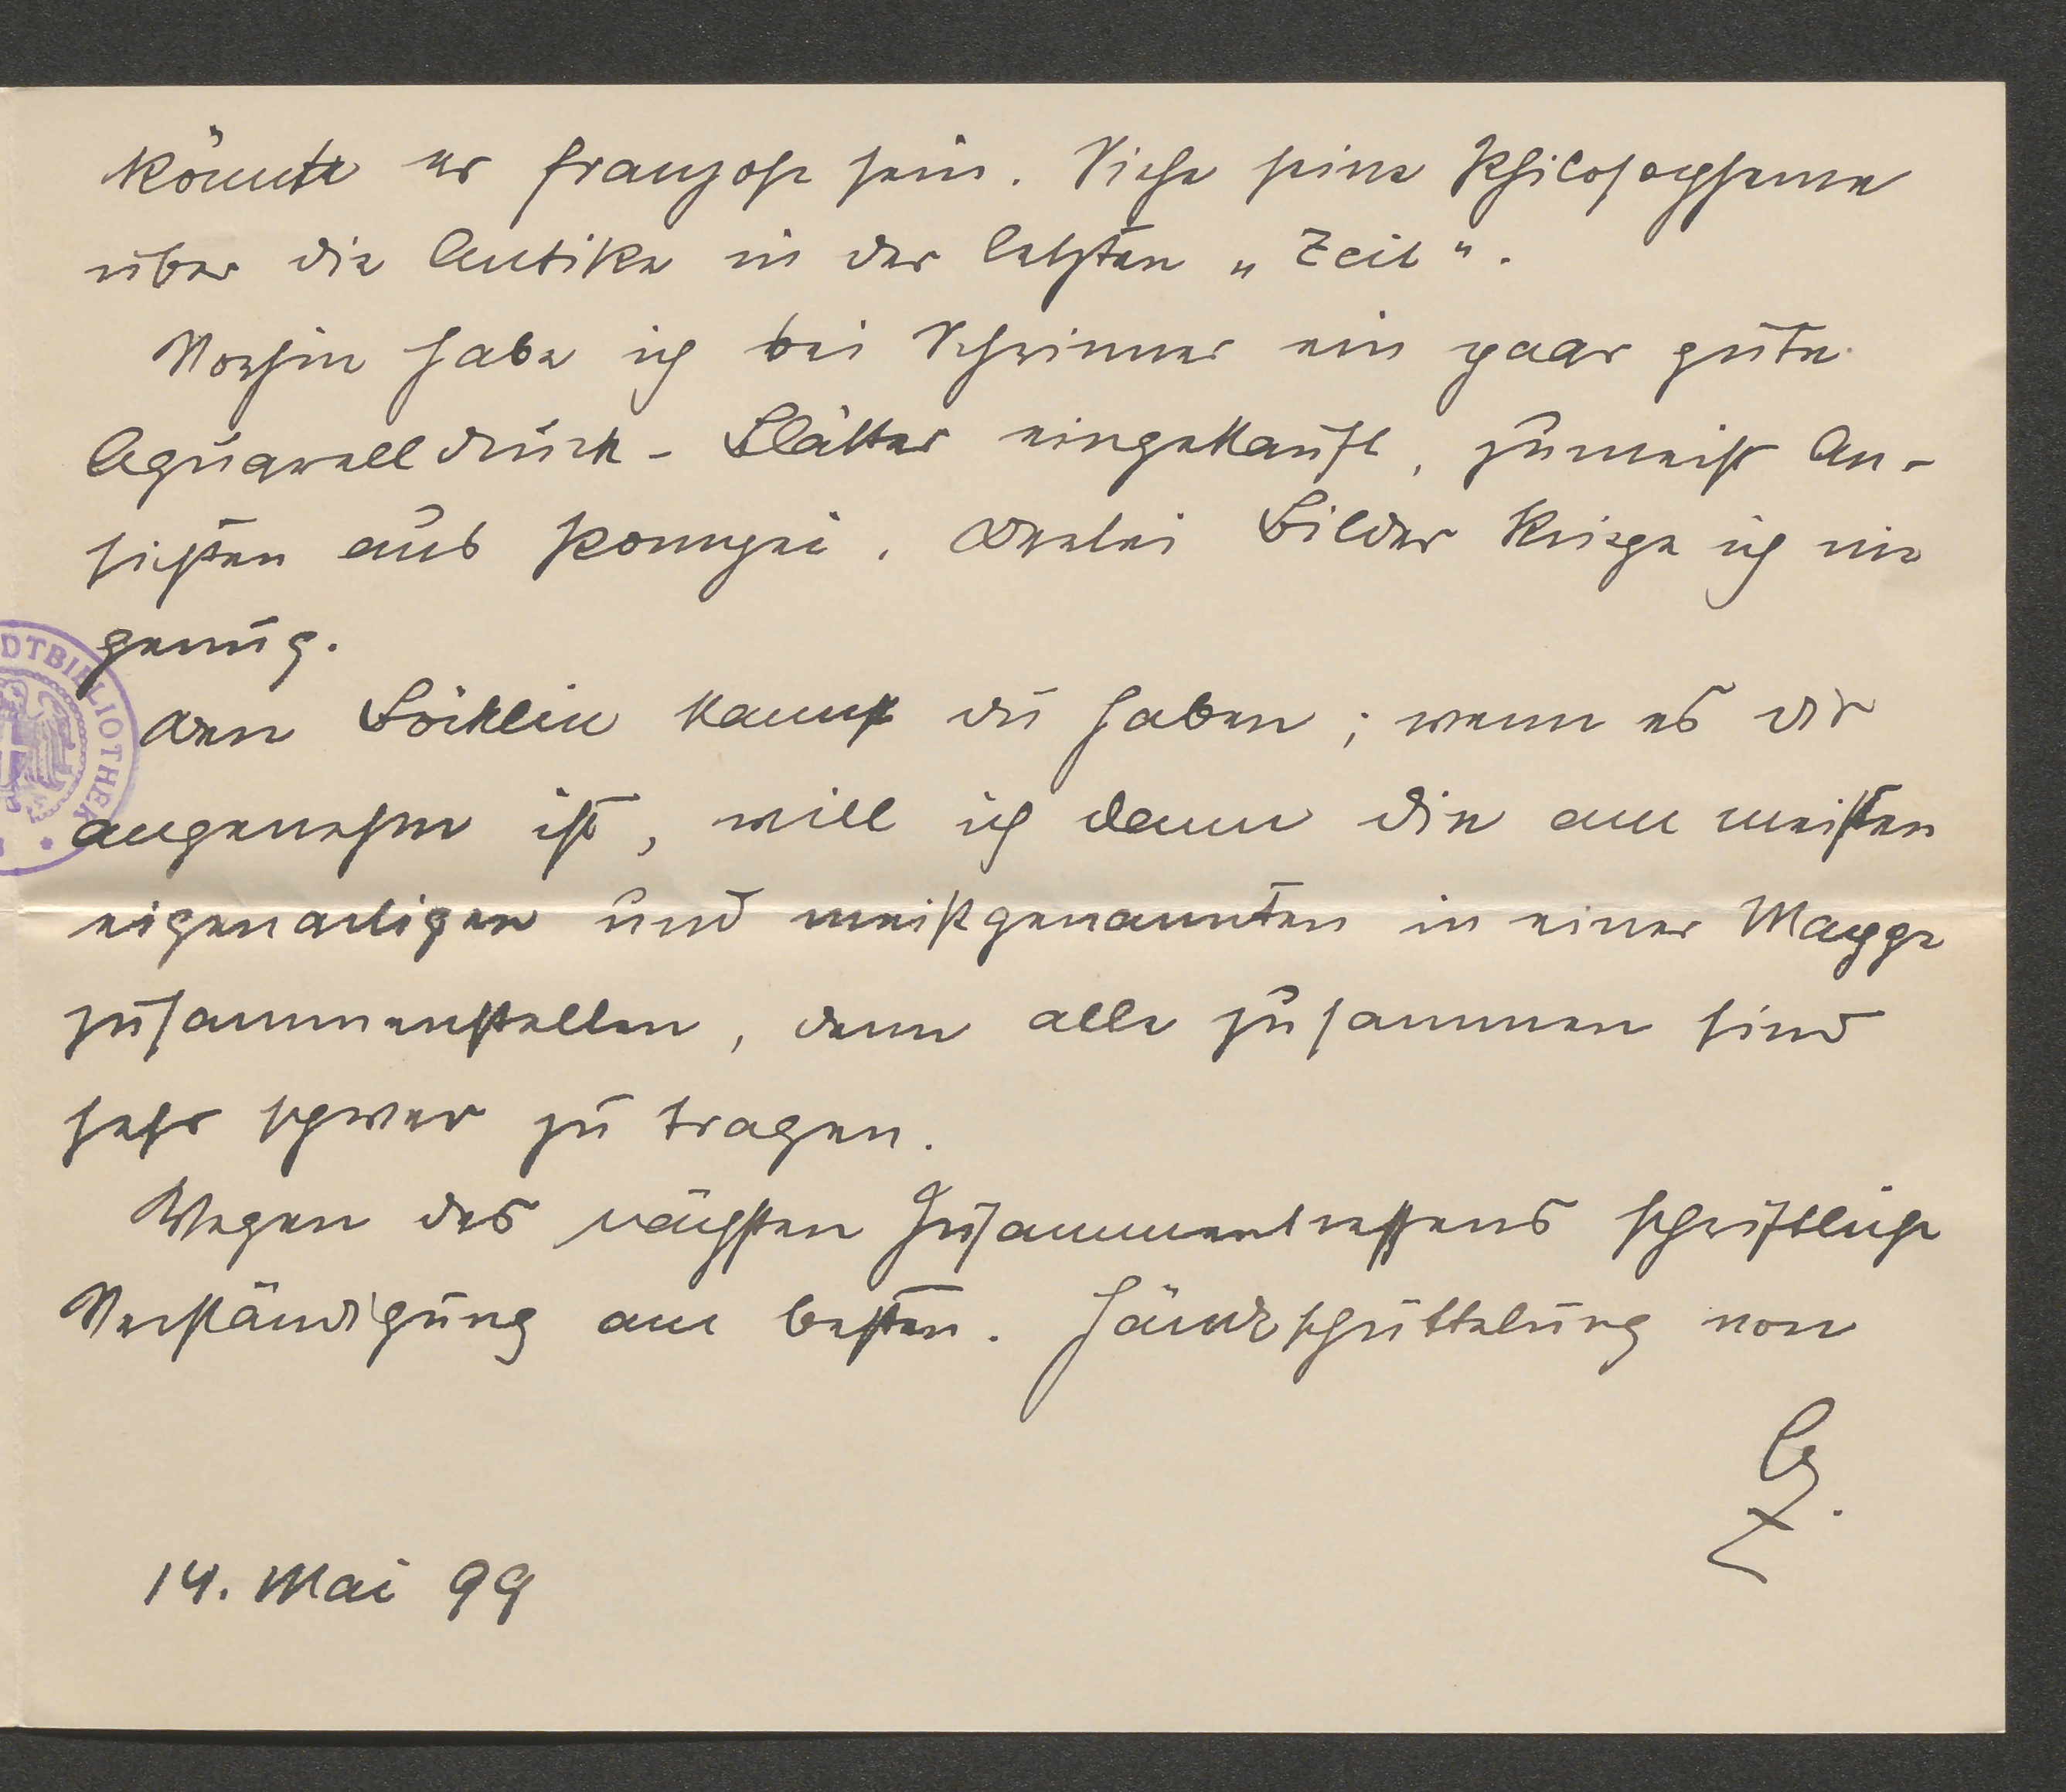 könnte er Franzose sein. Siehe seine Philosopheme
über die Antike in der letzten „Zeit".
Vorhin habe ich bei Schrimmer ein paar gute
Aquarelldruck-Blätter eingekauft, zumeist An-
sichten aus Pompei. Derlei Bilder kriege ich nie
genug.
Den Böcklin kannst du haben; wenn es dir
angenehm ist, will ich dann die am meisten
eigenartigen und meistgenannten in einer Mappe
zusammenstellen, denn alle zusammen sind
sehr schwer zu tragen.
Wegen des nächsten Zusammentreffens schriftliche
Verständigung am besten. Händeschüttelung von
G.
14. Mai 99
DTBIBLIOTHEK